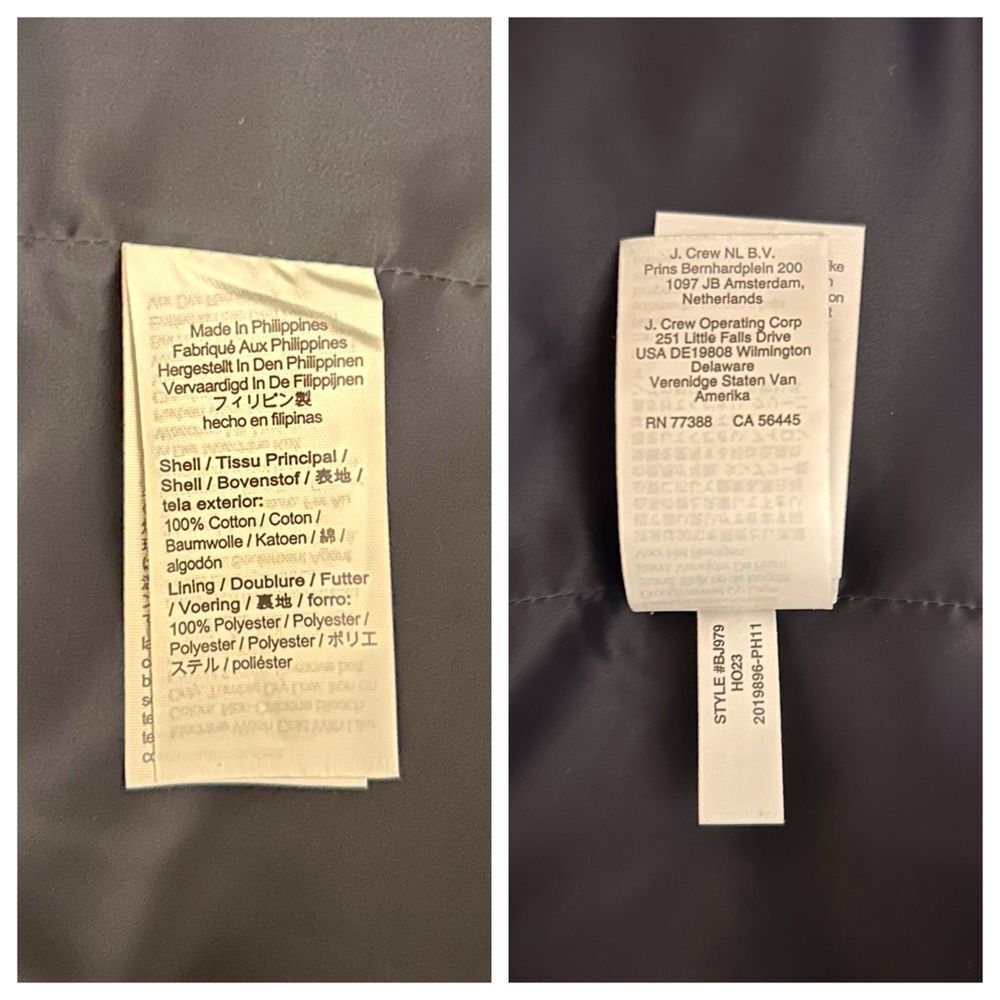 Made In Philippines
Fabriqué Aux Philippines
Hergestellt In Den Philippinen
Vervaardigd In De Filippijnen
フィリピン製
hecho en filipinas
Shell / Tissu Principal /
Shell / Bovenstof / 表地 /
tela exterior:
100% Cotton / Coton /
Baumwolle / Katoen / 綿 /
algodón
Lining / Doublure / Futter
/ Voering / 裏地 / forro:
100% Polyester / Polyester /
Polyester / Polyester / ポリエ
ステル / poliéster
J. Crew NL B.V.
Prins Bernhardplein 200
1097 JB Amsterdam,
Netherlands
J. Crew Operating Corp
251 Little Falls Drive
USA DE19808 Wilmington
Delaware
Verenidge Staten Van
Amerika
RN 77388 CA 56445
STYLE #BJ979
HO23
2019896-PH11